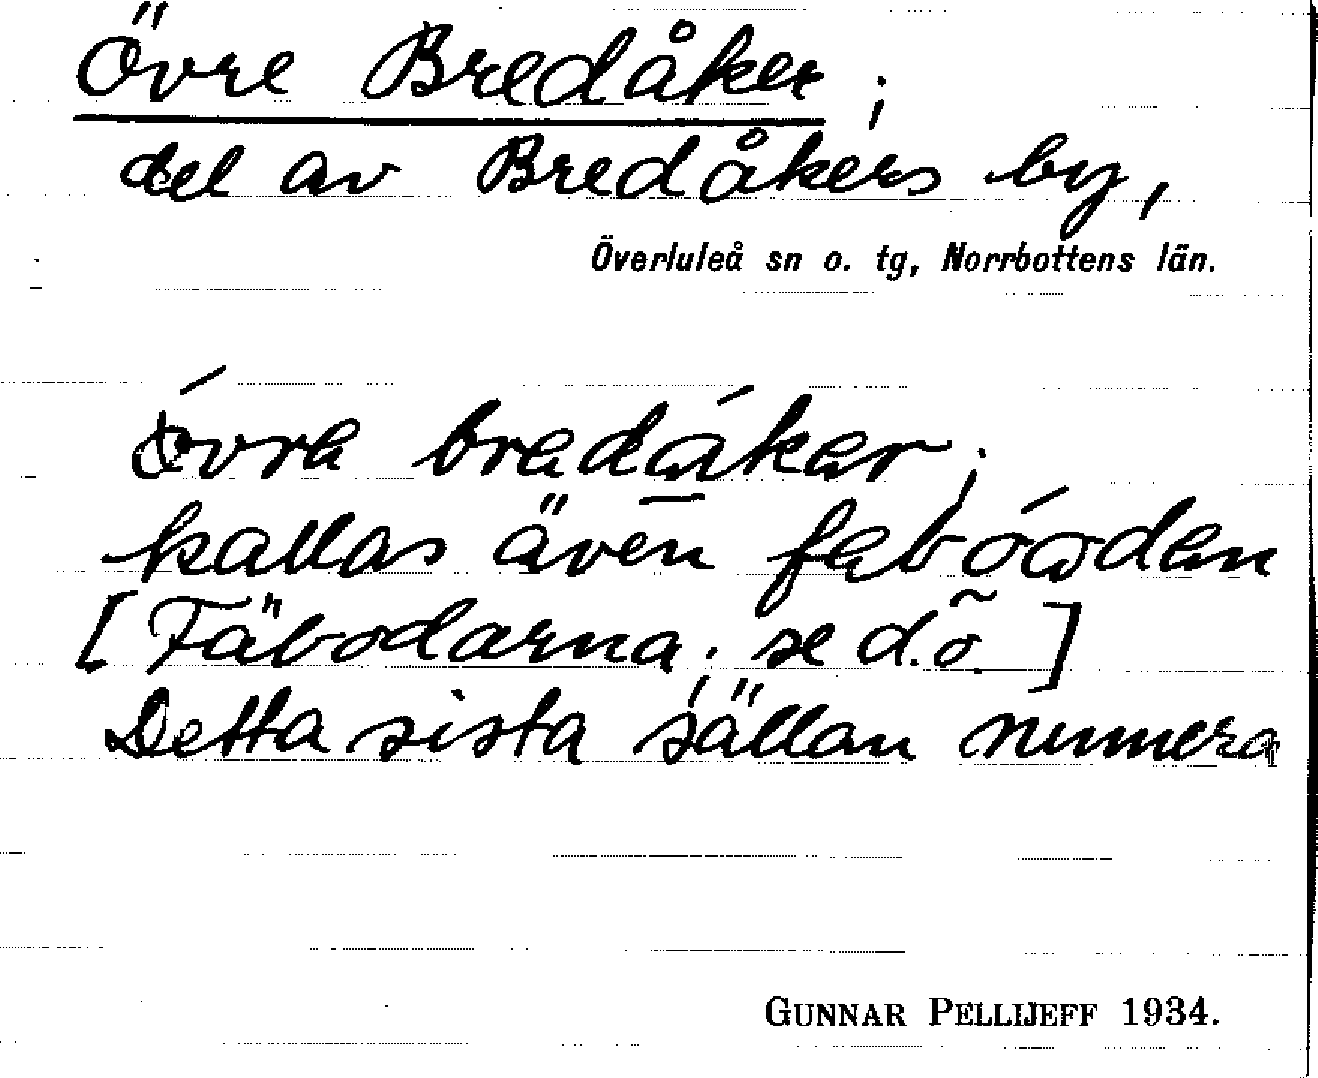 Övre Bredåker;
del av Bredåkers by,
Överluleå sn o. tg, Norrbottens län.
bredåker;
kallas även
[Fäbodarna; se d.õ.]
Detta sista sällan numera
GUNNAR PELLIJEFF 1934.